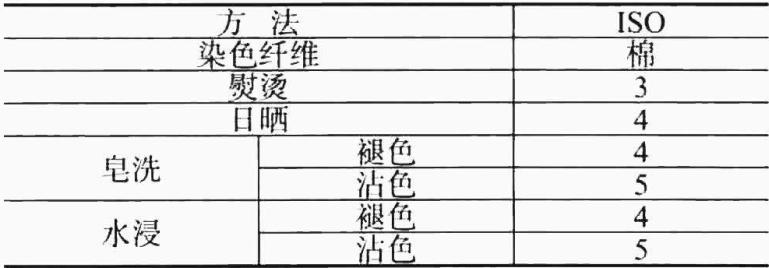 方 法 ISO
染色纤维 棉
熨烫 3
日晒 4
皂洗 褪色 4
沾色 5
水浸 褪色 4
沾色 5